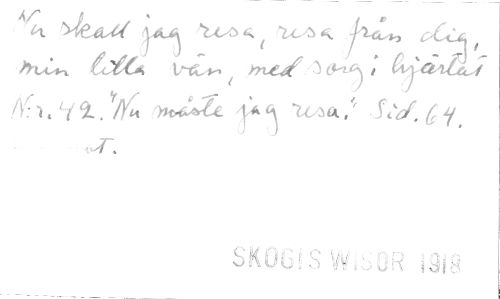 Nu skall jag resa, resa från dig,
min lilla vän, med sorg i hjärtat
N:r. 42. "Nu måste jag resa." Sid. 64.
SKOGIS WISOR 1918